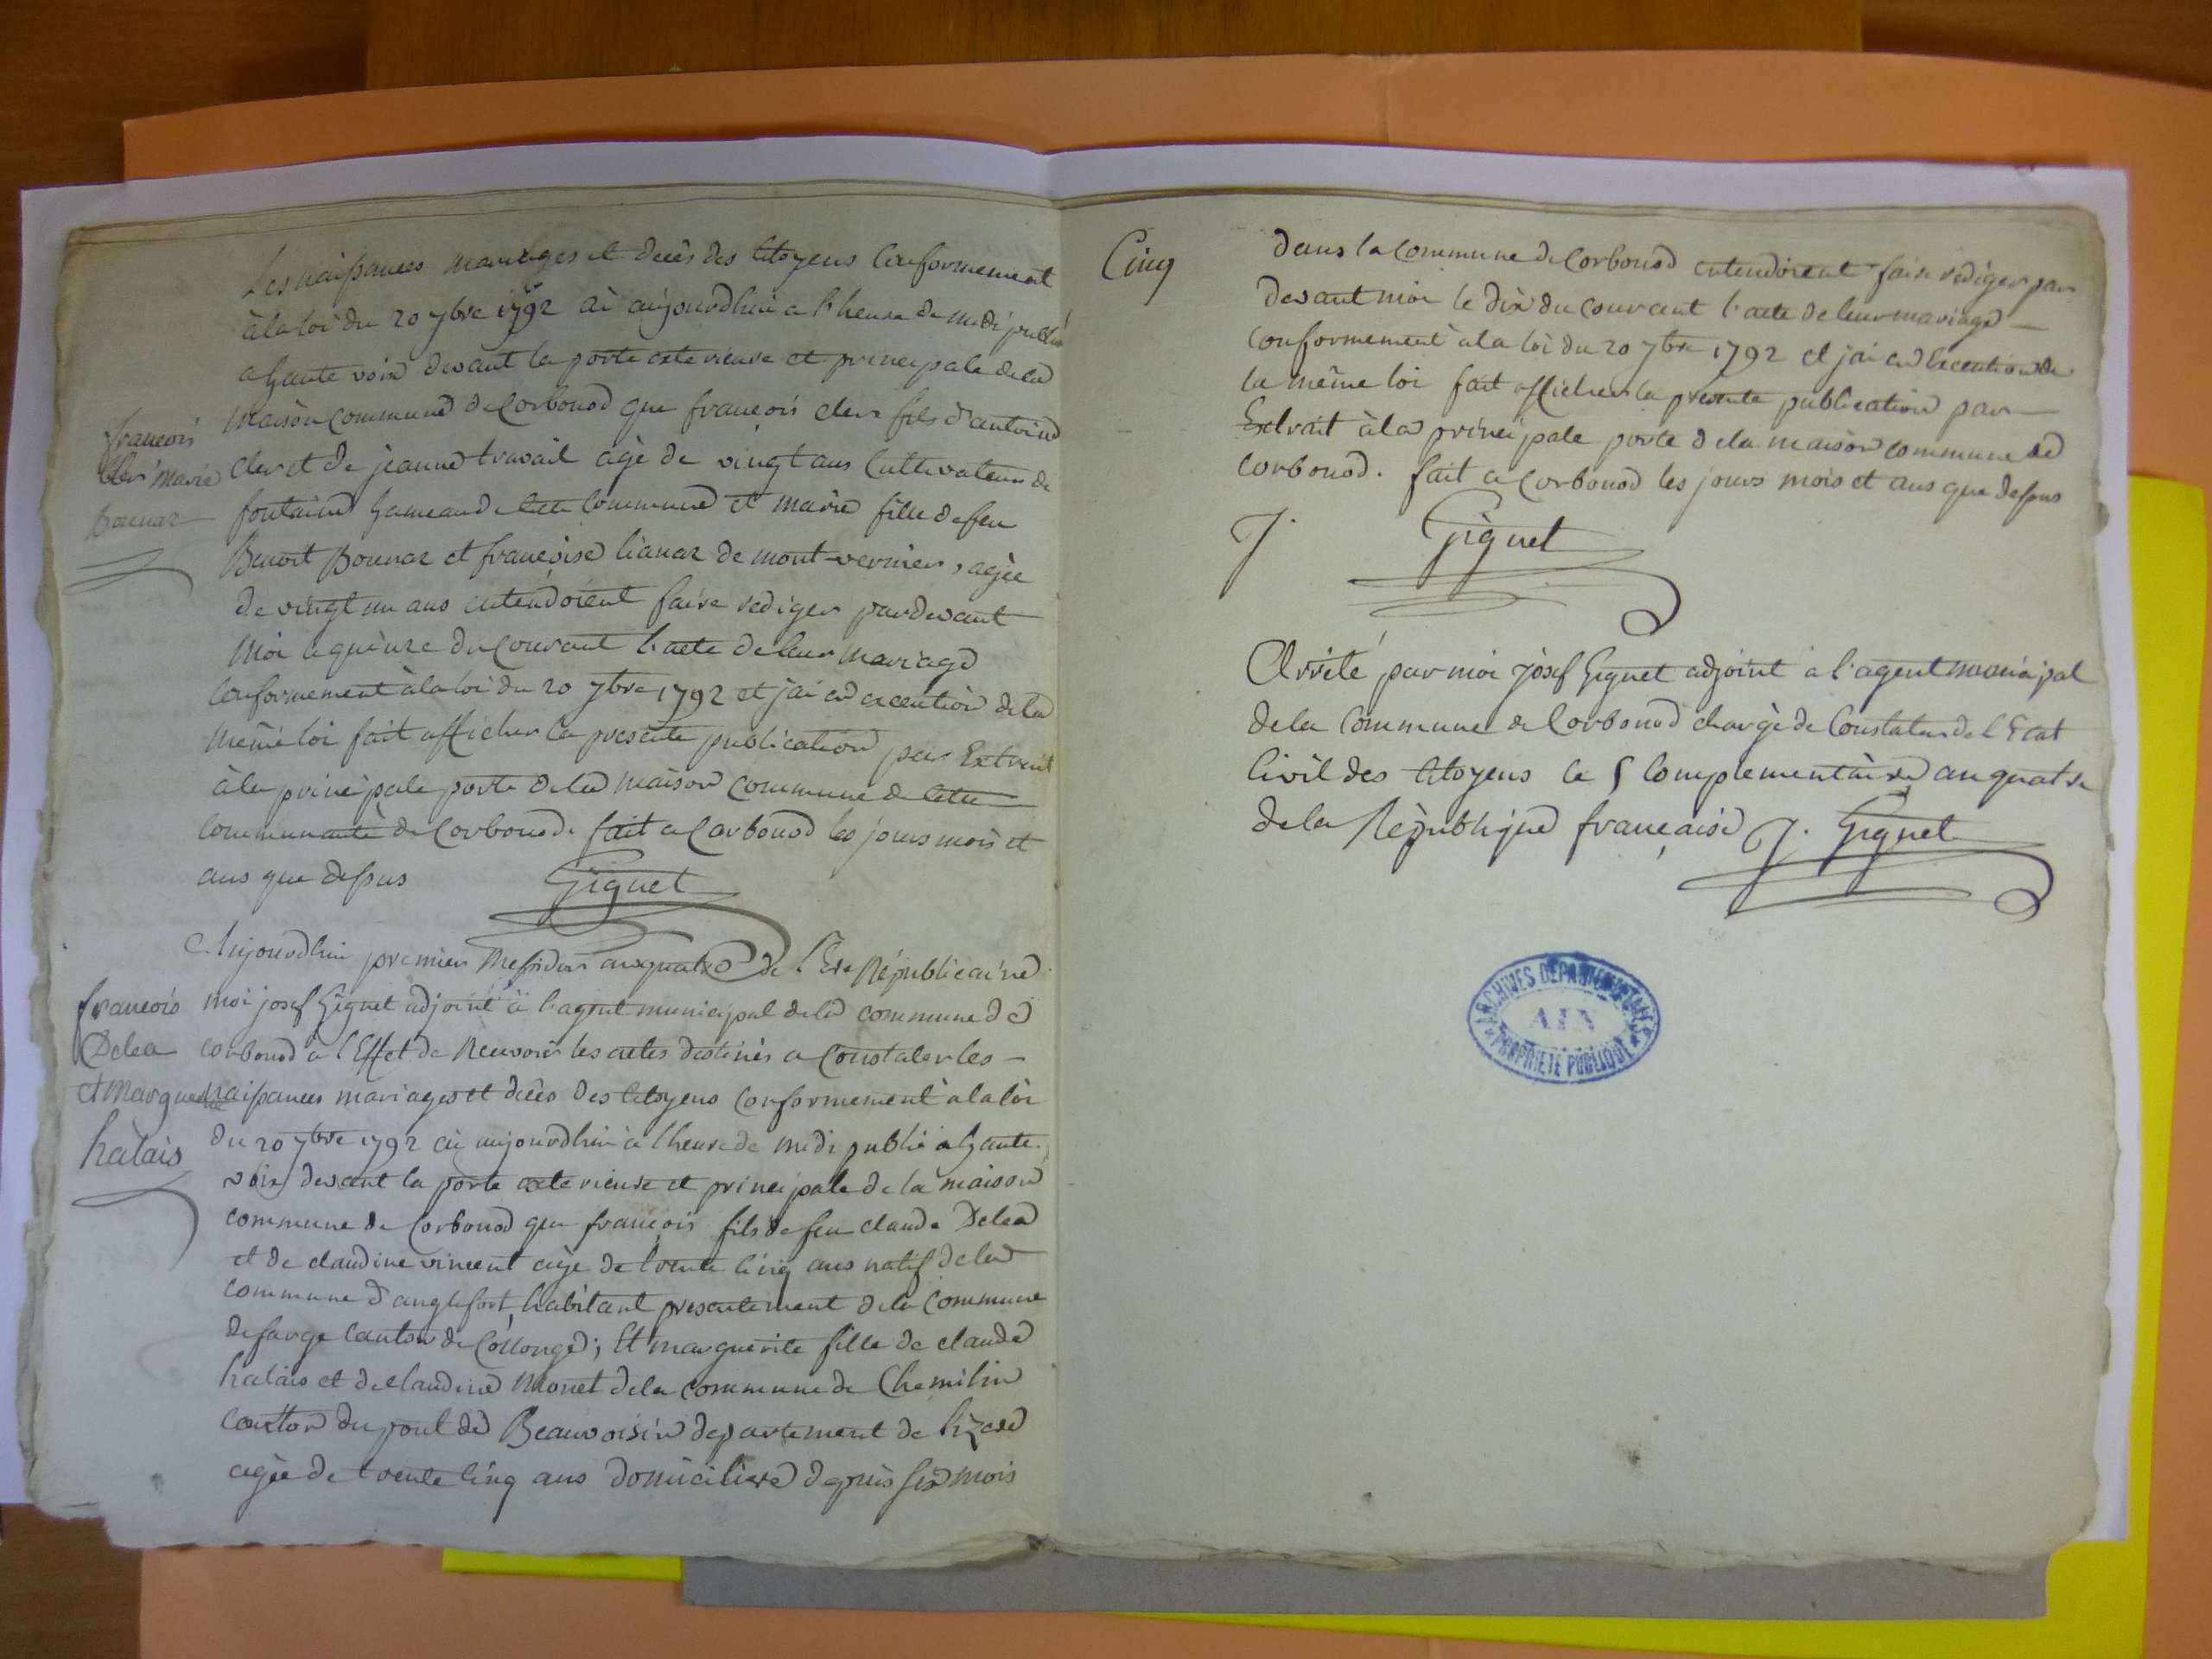 Les naissances mariages et decès des Citoyens Conformement
à la loi du 20 7bre 1792 ai aujourdhui a l'heure de midi publié
a haute voix devant la porte exterieure et principale de la
maison commune de Corbonod que francois clerc fils d'antoine
clerc et de jeanne travail agé de vingt ans Cultivateur de
fontaine hameau de cette Commune et marie fille de feu
Benoit Bounaz et francoise lianaz de mont-vernier, agée
de vingt un ans entendoient faire rediger pardevant
moi le quinze du Courant l'acte de leur mariage
Conformement à la loi du 20 7bre 1792 et j'ai en execution de la
même loi fait afficher la presente publication par Extrait
à la principale porte de la maison commune de cette
communauté de Corbonod. fait a Corbonod les jours mois et
ans que dessus Gignet
francois
clerc marie
Bounaz
Aujourdhui premier Messidor an quatre de l'Ere Républicaine
moi josef Gignet adjoint à l'agent municipal de la commune de
corbonod à l'Effet de Recevoir les actes destinés a Constater les
naissances mariages et décès des Citoyens Conformement à la loi
du 20 7bre 1792 ai aujourdhui à l'heure de midi publié a haute
voix devant la porte exterieure et principale de la maison
commune de Corbonod que françois fils de feu claude Delea
et de claudine vincent agé de trente cinq ans natif de la
commune d'anglefort habitant presentement de la Commune
de farge Canton de Collonge; Et marguerite fille de claude
halais et de claudine Monet de la commune de Chemilin
Canton du pont de Beauvoisin departement de lizere
agée de trente cinq ans domiciliere depuis six mois
francois
Delea
et Marguerite
halais
Cinq
dans la Commune de Corbonod entendoient faire rediger par
devant moi le dix du Courant l'acte de leur mariage
conformement à la loi du 20 7bre 1792 et j'ai en Execution de
la même loi fait afficher la presente publication par
Extrait à la principale porte de la maison commune de
corbonod. fait a Corbonod les jours mois et ans que dessus
J. Gignet
Arrêté par moi josef Gignet adjoint à l'agent municipal
de la Commune de Corbonod chargé de Constater de l'Etat
Civil des Citoyens le 5 Complementaire an quatre
de la République française J. Gignet
ARCHIVES DEPARTEMENTALES
AIN
PROPRIETE PUBLIQUE